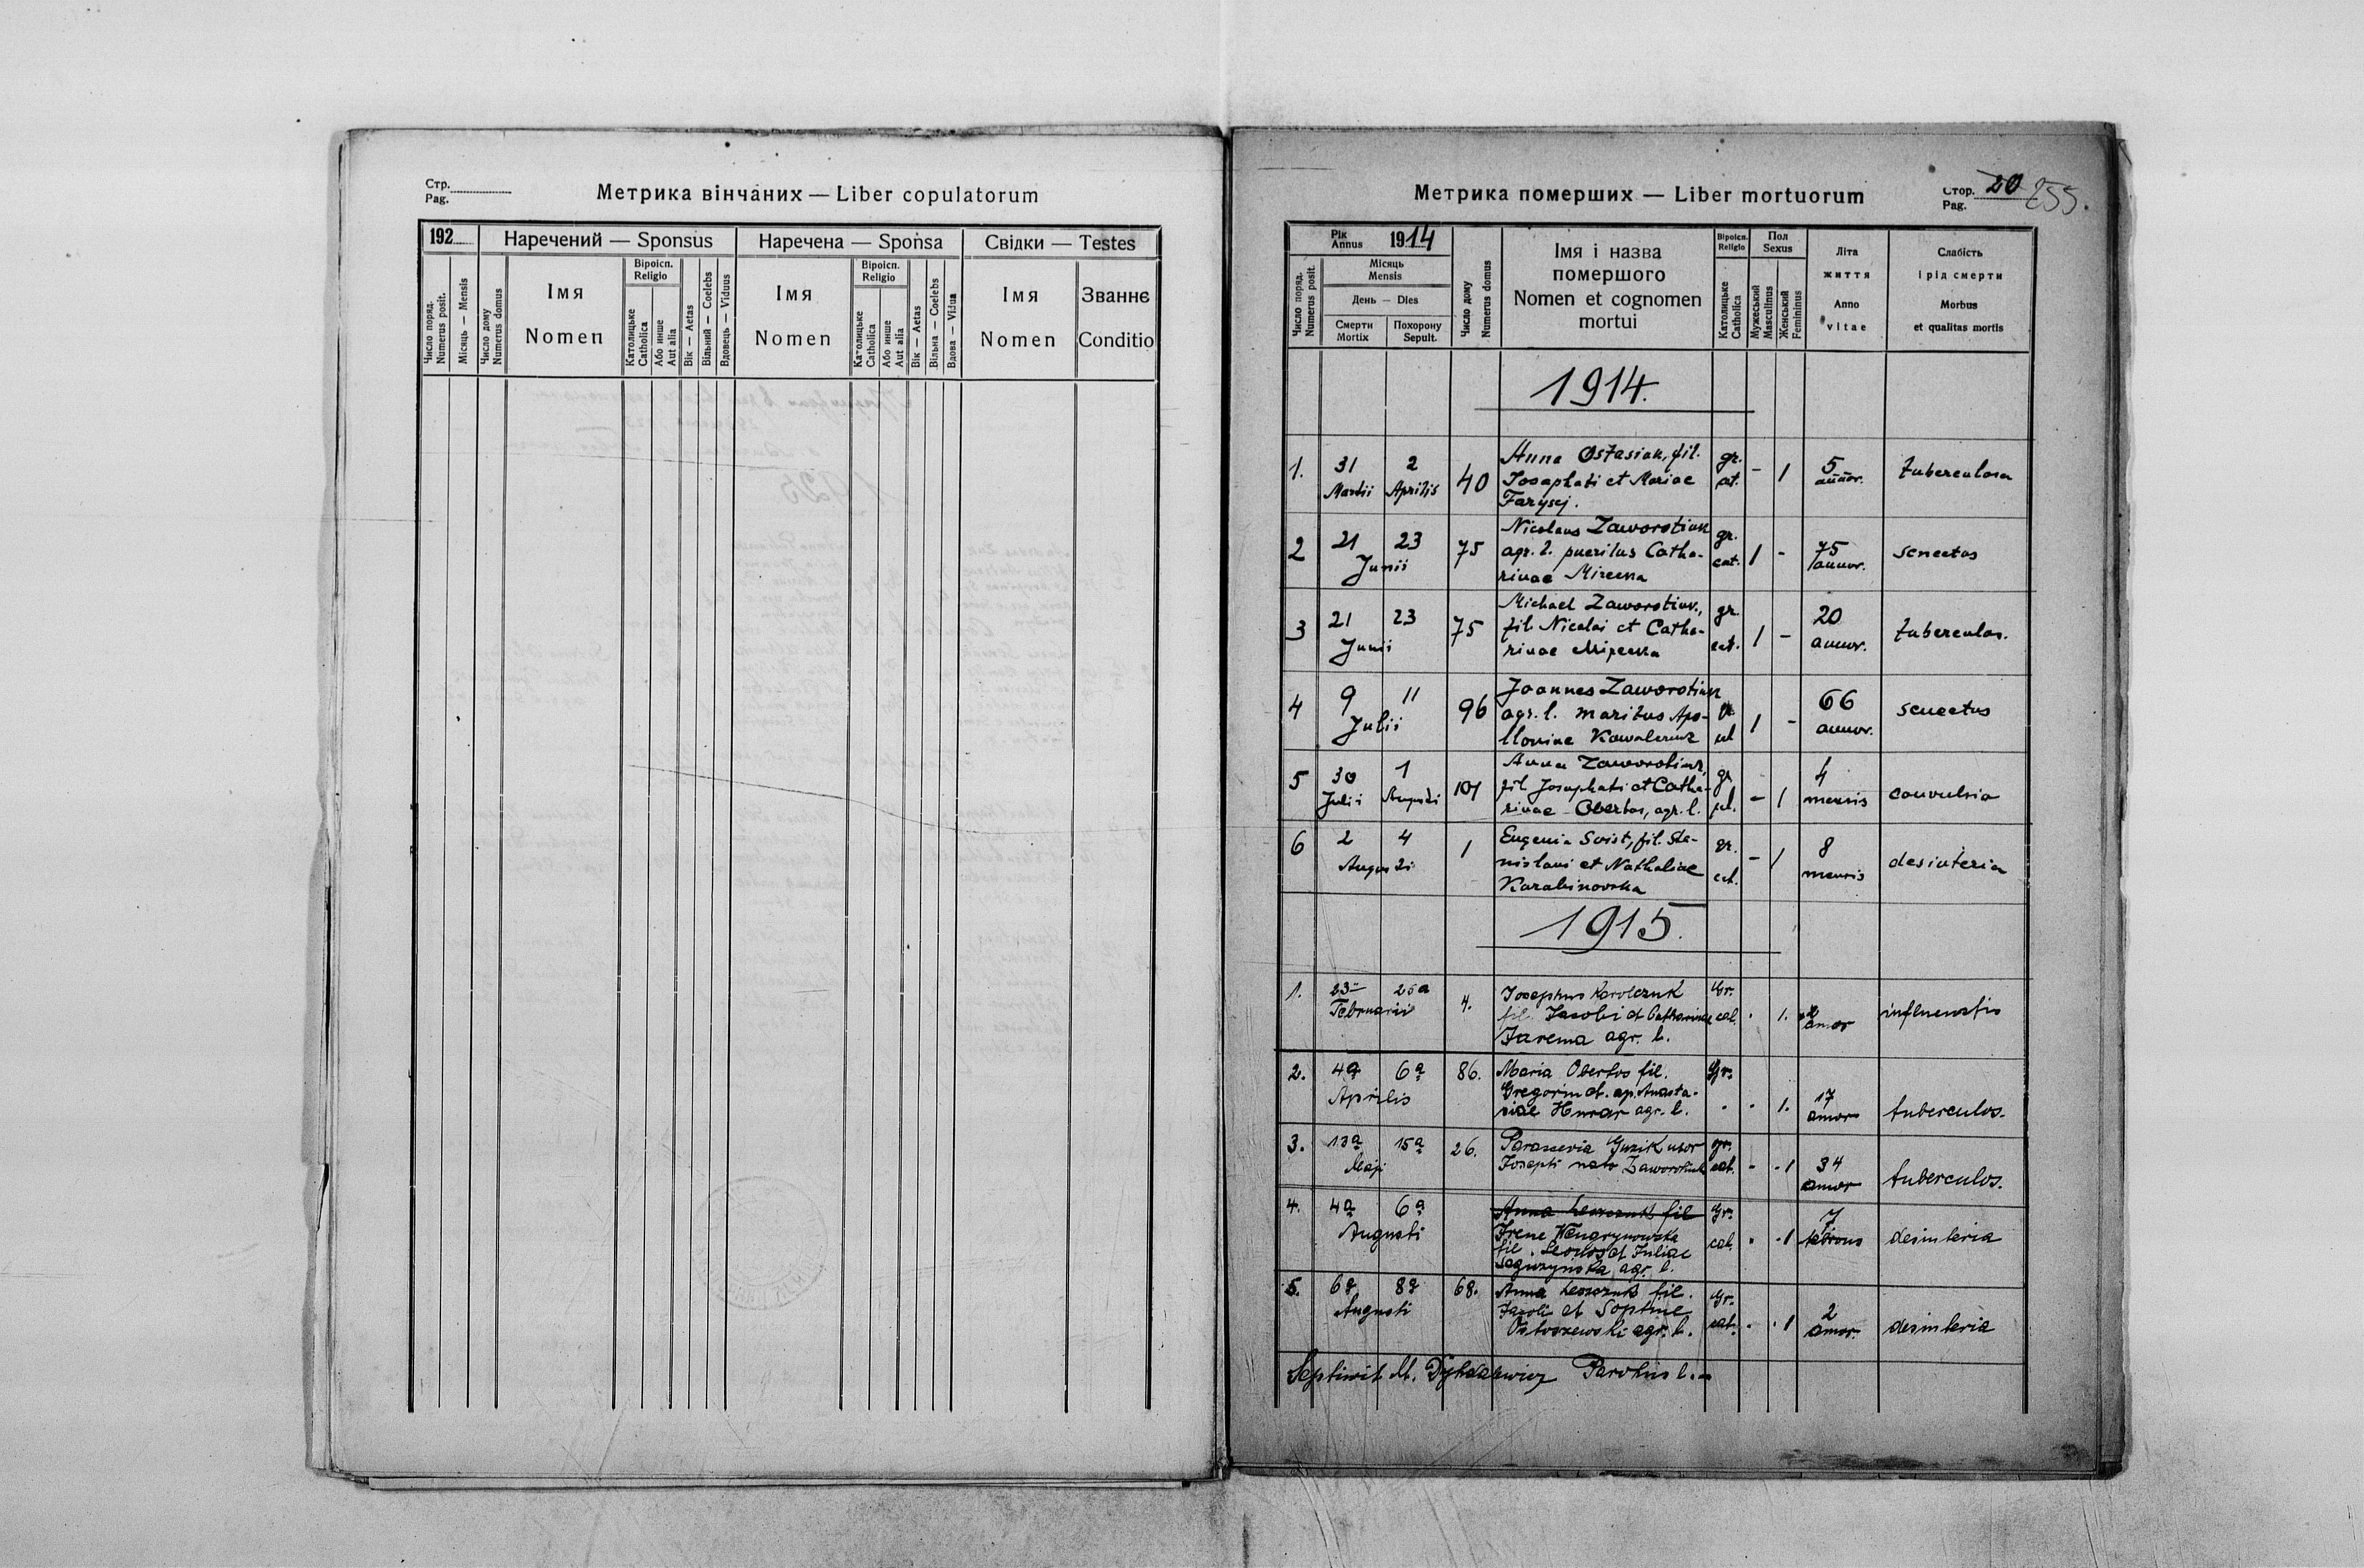 Стр.
Pag.
Метрика вінчаних — Liber copulatorum
192
Наречений — Sponsus
Наречена — Sponsa
Свідки — Testes
Число поряд.
Numerus posit.
Місяць — Mensis
Число дому
Numerus domus
Імя
Nomen
Віроісп.
Religio
Католицьке
Catholica
Або инше
Aut alia
Вік — Aetas
Вільний — Coelebs
Вдовець — Viduus
Імя
Nomen
Віроісп.
Religio
Католицьке
Catholica
Або инше
Aut alia
Вік — Aetas
Вільна — Coelebs
Вдова — Vidua
Імя
Nomen
Званнє
Conditio
Метрика померших — Liber mortuorum
Стор. 20 255.
Pag.
Рік
Annus 1914
Число поряд.
Numerus posit.
Місяць
Mensis
День — Dies
Смерти
Mortix
Похорону
Sepult.
Число дому
Numerus domus
Імя і назва
помершого
Nomen et cognomen
mortui
Віроісп.
Religio
Католицьке
Catholica
Пол
Sexus
Мужеський
Masculinus
Женський
Femininus
Літа
життя
Anno
vitae
Слабість
і рід смерти
Morbus
et qualitas mortis
1914.
1. 31 Martii 2 Aprilis 40 gr. cat. - 1 5 annor. tuberculosa
Anna Ostasiak, fil.
Josaphati et Mariae
Farysej.
2 21 23 Junii 75 gr. cat. 1 - 75 annor. senectus
Nicolaus Zaworotiuk
agr. l. Catha-
rinae
3 21 23 Junii 75 gr. cat. 1 - 20 annor. tuberculos.
Michael Zaworotiuk,
fil. Nicolai et Catha-
rinae
4 9 11 Julii 96 1 - 66 annor. senectus
Joannes Zaworotiuk
agr. l. maritus Apo-
lloniae
5 30 Julii 1 Augusti 101 gr. - 1 4 mensis convulsia
Anna Zaworotiuk,
fil. Josaphati et Catha-
rinae Obertas, agr. l.
6 2 4 Augusti 1 gr. cat. - 1 8 mensis desinteria
Eugenia Swist, fil. Sta-
nislavi et Nathaliae
Karabinowska
1915.
1. 23 25a Februarii 4. Gr. cat. . 1. annor
Josephus Karolczuk
fil. Jacobi et Catharinae
Jarema agr. l.
2. 4a 6a Aprilis 86. Gr. . . 1. 17 annor tuberculos.
Maria Obertos fil.
Gregorii et Anasta-
siae agr. l.
3. 13a 15a Maji 26. gr. cat. - . 1 34 annor tuberculos.
Parascevia Guzik uxor
Josephi nata Zaworotiuk
4. 4a 6a Augusti Gr. cat. . . 1 7 desinteria
Anna Leszczuk fil
Irene
fil. et Juliae
agr. l.
5. 6a 8a Augusti 68. Gr. cat. . . 1 2 annor. desinteria
Anna Leszczuk fil.
Jacobi et Sophiae
agr. l.
M. Parochus l.